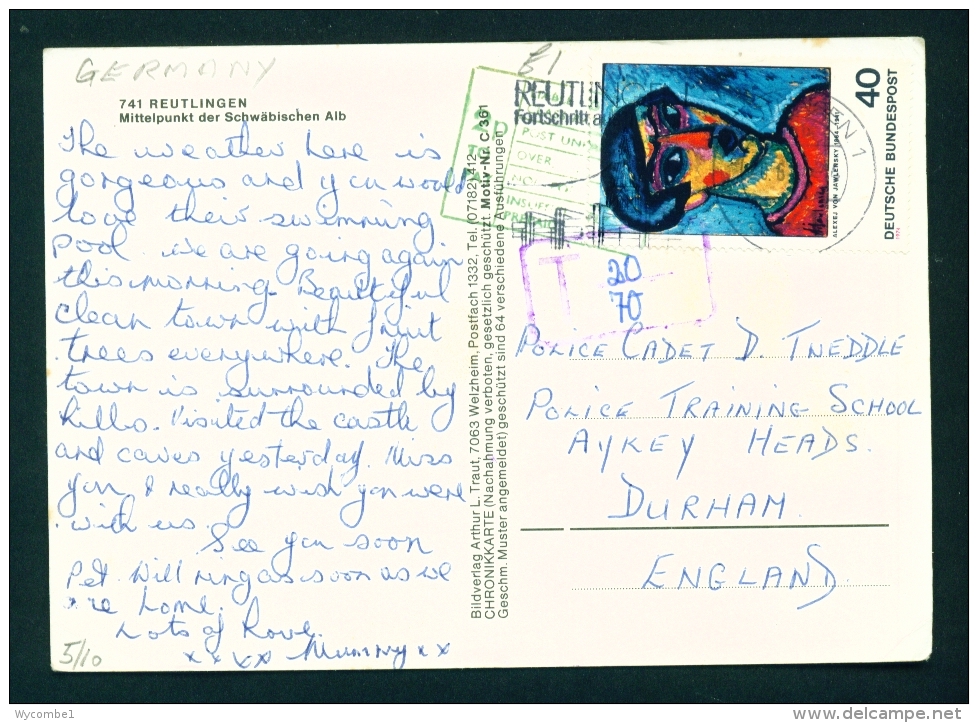 GERMANY
741 REUTLINGEN
Mittelpunkt der Schwäbischen Alb
The weather here is
gorgeous and you would
love their swimming
pool. We are going again
this morning. Beautiful
clean town with fruit
trees everywhere. The
town is surrounded by
hills. Visited the castle
and caves yesterday. Miss
you, I really wish you were
with us.
See you soon
Pet. Will ring as soon as we
are home.
Lots of Love.
x x x x Mummy x x
5/10
Bildverlag Arthur L. Traut, 7063 Welzheim, Postfach 1332, Tel. (07182) 412
CHRONIKKARTE (Nachahmung verboten, gesetzlich geschützt. Motiv-Nr. C 361
Geschm. Muster angemeldet) geschützt sind 64 verschiedene Ausführungen
£1
REUTLINGEN 1
Fortschritt a
TO
POST UN
OVER
INSUFF
PREPAID
40
DEUTSCHE BUNDESPOST
ALEXEJ VON JAWLENSKY 1864-1941
1974
T
20
70
POLICE CADET D. TNEDDLE
POLICE TRAINING SCHOOL
AYKEY HEADS.
DURHAM.
ENGLAND.
Wycombe1
www.delcampe.net